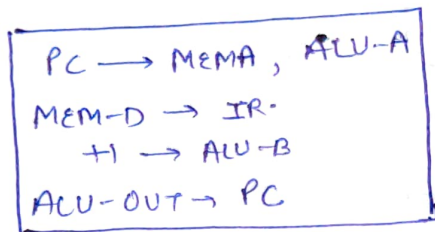 PC → MEMA, ALU-A
MEM-D → IR.
+1 → ALU-B
ALU-OUT → PC